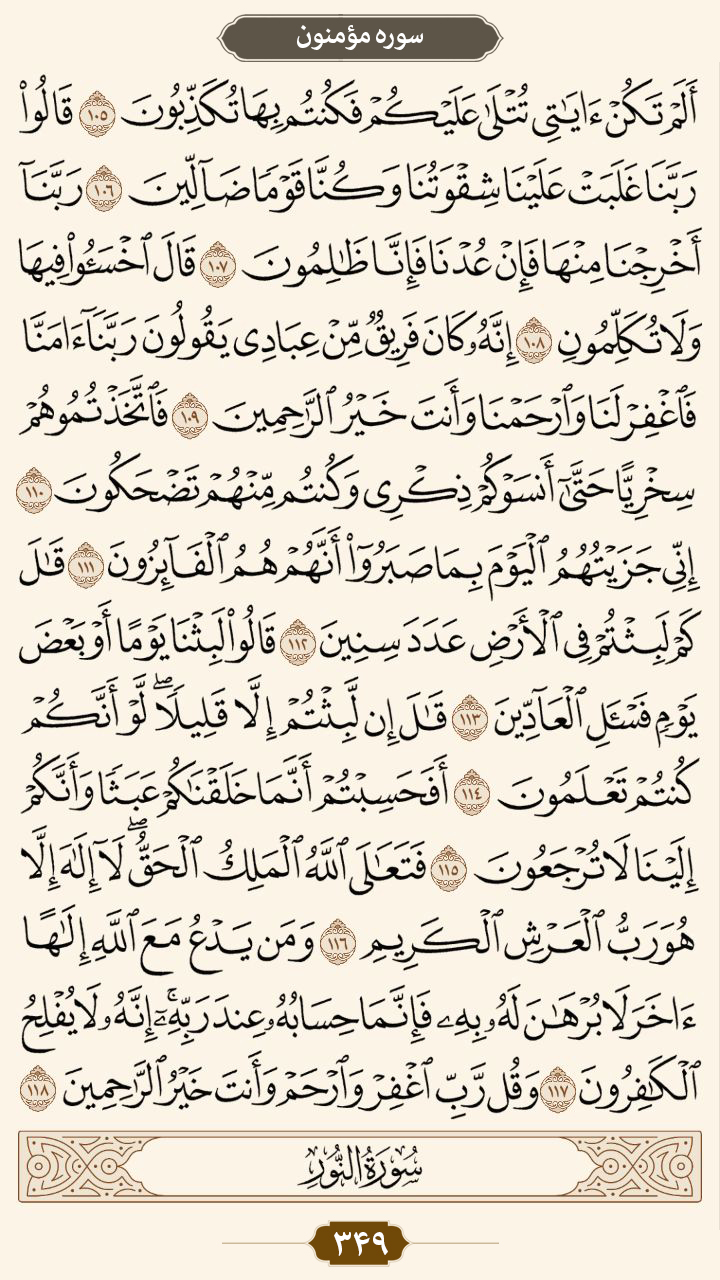 سوره مؤمنون
أَلَمْ تَكُنْ ءَايَٰتِي تُتْلَىٰ عَلَيْكُمْ فَكُنتُم بِهَا تُكَذِّبُونَ ١٠٥ قَالُوا۟
رَبَّنَا غَلَبَتْ عَلَيْنَا شِقْوَتُنَا وَكُنَّا قَوْمًا ضَآلِّينَ ١٠٦ رَبَّنَآ
أَخْرِجْنَا مِنْهَا فَإِنْ عُدْنَا فَإِنَّا ظَٰلِمُونَ ١٠٧ قَالَ ٱخْسَـُٔوا۟ فِيهَا
وَلَا تُكَلِّمُونِ ١٠٨ إِنَّهُۥ كَانَ فَرِيقٌ مِّنْ عِبَادِى يَقُولُونَ رَبَّنَآ ءَامَنَّا
فَٱغْفِرْ لَنَا وَٱرْحَمْنَا وَأَنتَ خَيْرُ ٱلرَّٰحِمِينَ ١٠٩ فَٱتَّخَذْتُمُوهُمْ
سِخْرِيًّا حَتَّىٰٓ أَنسَوْكُمْ ذِكْرِى وَكُنتُم مِّنْهُمْ تَضْحَكُونَ ١١٠
إِنِّى جَزَيْتُهُمُ ٱلْيَوْمَ بِمَا صَبَرُوٓا۟ أَنَّهُمْ هُمُ ٱلْفَآئِزُونَ ١١١ قَٰلَ
كَمْ لَبِثْتُمْ فِى ٱلْأَرْضِ عَدَدَ سِنِينَ ١١٢ قَالُوا۟ لَبِثْنَا يَوْمًا أَوْ بَعْضَ
يَوْمٍ فَسْـَٔلِ ٱلْعَآدِّينَ ١١٣ قَٰلَ إِن لَّبِثْتُمْ إِلَّا قَلِيلًا ۖ لَّوْ أَنَّكُمْ
كُنتُمْ تَعْلَمُونَ ١١٤ أَفَحَسِبْتُمْ أَنَّمَا خَلَقْنَٰكُمْ عَبَثًا وَأَنَّكُمْ
إِلَيْنَا لَا تُرْجَعُونَ ١١٥ فَتَعَٰلَى ٱللَّهُ ٱلْمَلِكُ ٱلْحَقُّ ۖ لَآ إِلَٰهَ إِلَّا
هُوَ رَبُّ ٱلْعَرْشِ ٱلْكَرِيمِ ١١٦ وَمَن يَدْعُ مَعَ ٱللَّهِ إِلَٰهًا
ءَاخَرَ لَا بُرْهَٰنَ لَهُۥ بِهِۦ فَإِنَّمَا حِسَابُهُۥ عِندَ رَبِّهِۦٓ ۚ إِنَّهُۥ لَا يُفْلِحُ
ٱلْكَٰفِرُونَ ١١٧ وَقُل رَّبِّ ٱغْفِرْ وَٱرْحَمْ وَأَنتَ خَيْرُ ٱلرَّٰحِمِينَ ١١٨
سُورَةُ النُّورِ
۳۴۹